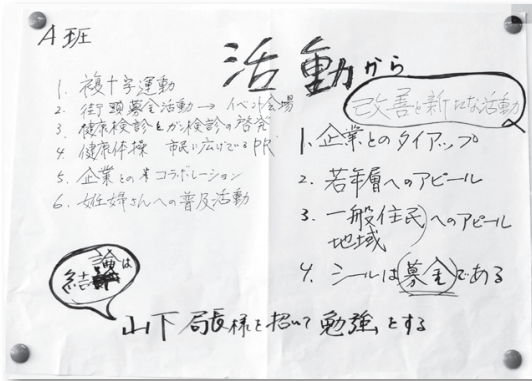 A班
活動から
1. 複十字運動
2. 街頭募金活動→イベント会場
3. 健康検診とガン検診の啓発
4. 健康体操 市民に広げているPR
5. 企業とのコラボレーション
6. 妊妊婦さんへの普及活動
改善と新たな活動
1. 企業とのタイアップ
2. 若年層へのアピール
3. 一般住民 地域 へのアピール
4. シールは募金である
結論は
山下局長様を招いて勉強とする